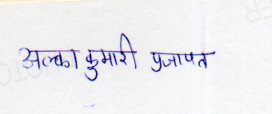 अल्का कुमारी प्रजापत